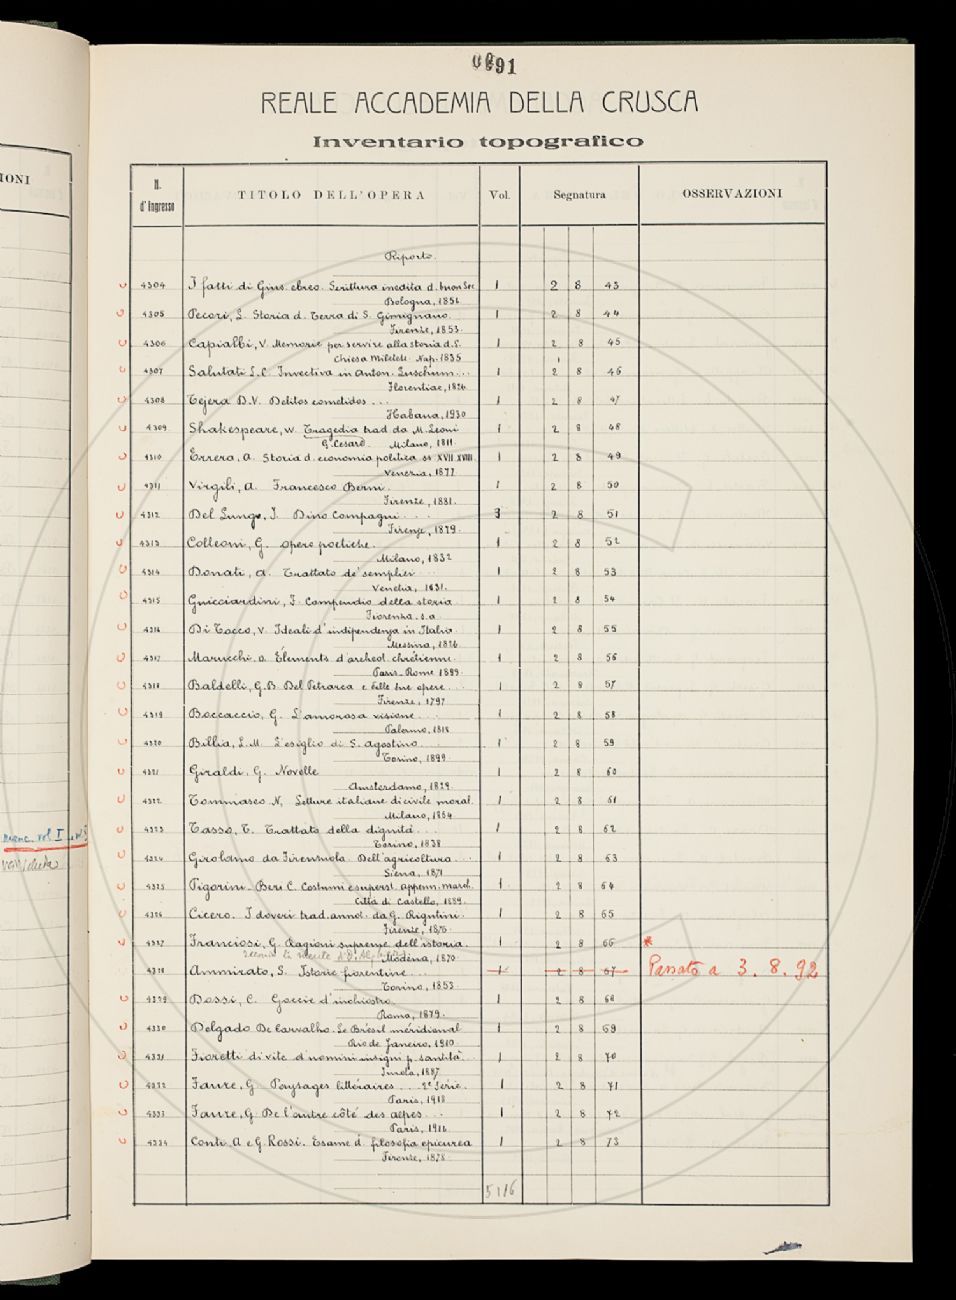 91
REALE ACCADEMIA DELLA CRUSCA
Inventario topografico
IONI
N. d'Ingresso TITOLO DELL'OPERA Vol. Segnatura OSSERVAZIONI
Riporto.
4304 I fatti di Gius. ebreo. Scrittura inedita d. buon Sec. 1 2 8 43
Bologna, 1851
4305 Pecori, L. Storia d. Terra di S. Gimignano. 1 2 8 44
Firenze, 1853.
4306 Capialbi, V. Memorie per servire alla storia d. S. 1 2 8 45
Chiesa Miletese. Nap. 1835
4307 Salutati L.C. Invectiva in Anton. Luschium... 1 2 8 46
Florentiae, 1826
4308 Tejera D.V. Delitos cometidos... 1 2 8 47
Habana, 1930
4309 Shakespeare, W. Tragedia trad da M. Leoni 1 2 8 48
G. Cesare. Milano, 1811.
4310 Errera, A. Storia d. economia politica ss XVII.XVIII. 1 2 8 49
Venezia, 1877
4311 Virgili, A. Francesco Berni. 1 2 8 50
Firenze, 1881.
4312 Del Lungo, I. Dino Compagni... 3 2 8 51
Firenze, 1879.
4313 Colleoni, G. opere poetiche. 1 2 8 52
Milano, 1832
4314 Donati, A. Trattato de' semplici... 1 2 8 53
Venetia, 1631.
4315 Guicciardini, F. Compendio della storia 1 2 8 54
Fiorenza. s.a.
4316 Di Tocco, V. Ideali d'indipendenza in Italia. 1 2 8 55
Messina, 1926
4317 Marucchi, O. Élements d'archéol. chrétienne. 1 2 8 56
Paris-Rome 1899.
4318 Baldelli, G.B. Del Petrarca e delle sue opere... 1 2 8 57
Firenze, 1797
4319 Boccaccio, G. L'amorosa visione... 1 2 8 58
Palermo, 1818
4320 Billia, L.M. L'esiglio di S. Agostino. 1 2 8 59
Torino, 1899.
4321 Giraldi, G. Novelle 1 2 8 60
Amsterdamo, 1819.
4322 Tommaseo N, Letture italiane di civile moral. 1 2 8 61
Milano, 1864
4323 Tasso, T. Trattato della dignità... 1 2 8 62
Torino, 1838
4324 Girolamo da Firenzuola. Dell'agricoltura... 1 2 8 63
Siena, 1871
4325 Pigorini-Beri C. Costumi e superst. appenn. march. 1 2 8 64
Città di Castello, 1889.
4326 Cicero. I doveri trad. annot. da G. Rigutini. 1 2 8 65
Firenze, 1876
4327 Franciosi, G. Ragioni supreme dell'istoria. 1 2 8 66 *
secondo la mente d. D. Al. Modena, 1870.
4328 Ammirato, S. Istorie fiorentine... 1 2 8 67 Passato a 3. 8. 92
Torino, 1853.
4329 Dossi, C. Goccie d'inchiostro. 1 2 8 68
Roma, 1879.
4330 Delgado De Carvalho. Le Brésil méridional 1 2 8 69
Rio de Janeiro, 1910.
4331 Fioretti di vite d'uomini insigni p. santità... 1 2 8 70
Imola, 1887.
4332 Faure, G. Paysages littéraires... 2e Serie. 1 2 8 71
Paris, 1918
4333 Faure, G. De l'autre côté des alpes... 1 2 8 72
Paris, 1916
4334 Conti, A e G. Rossi. Esame d. filosofia epicurea 1 2 8 73
Firenze, 1878.
5116